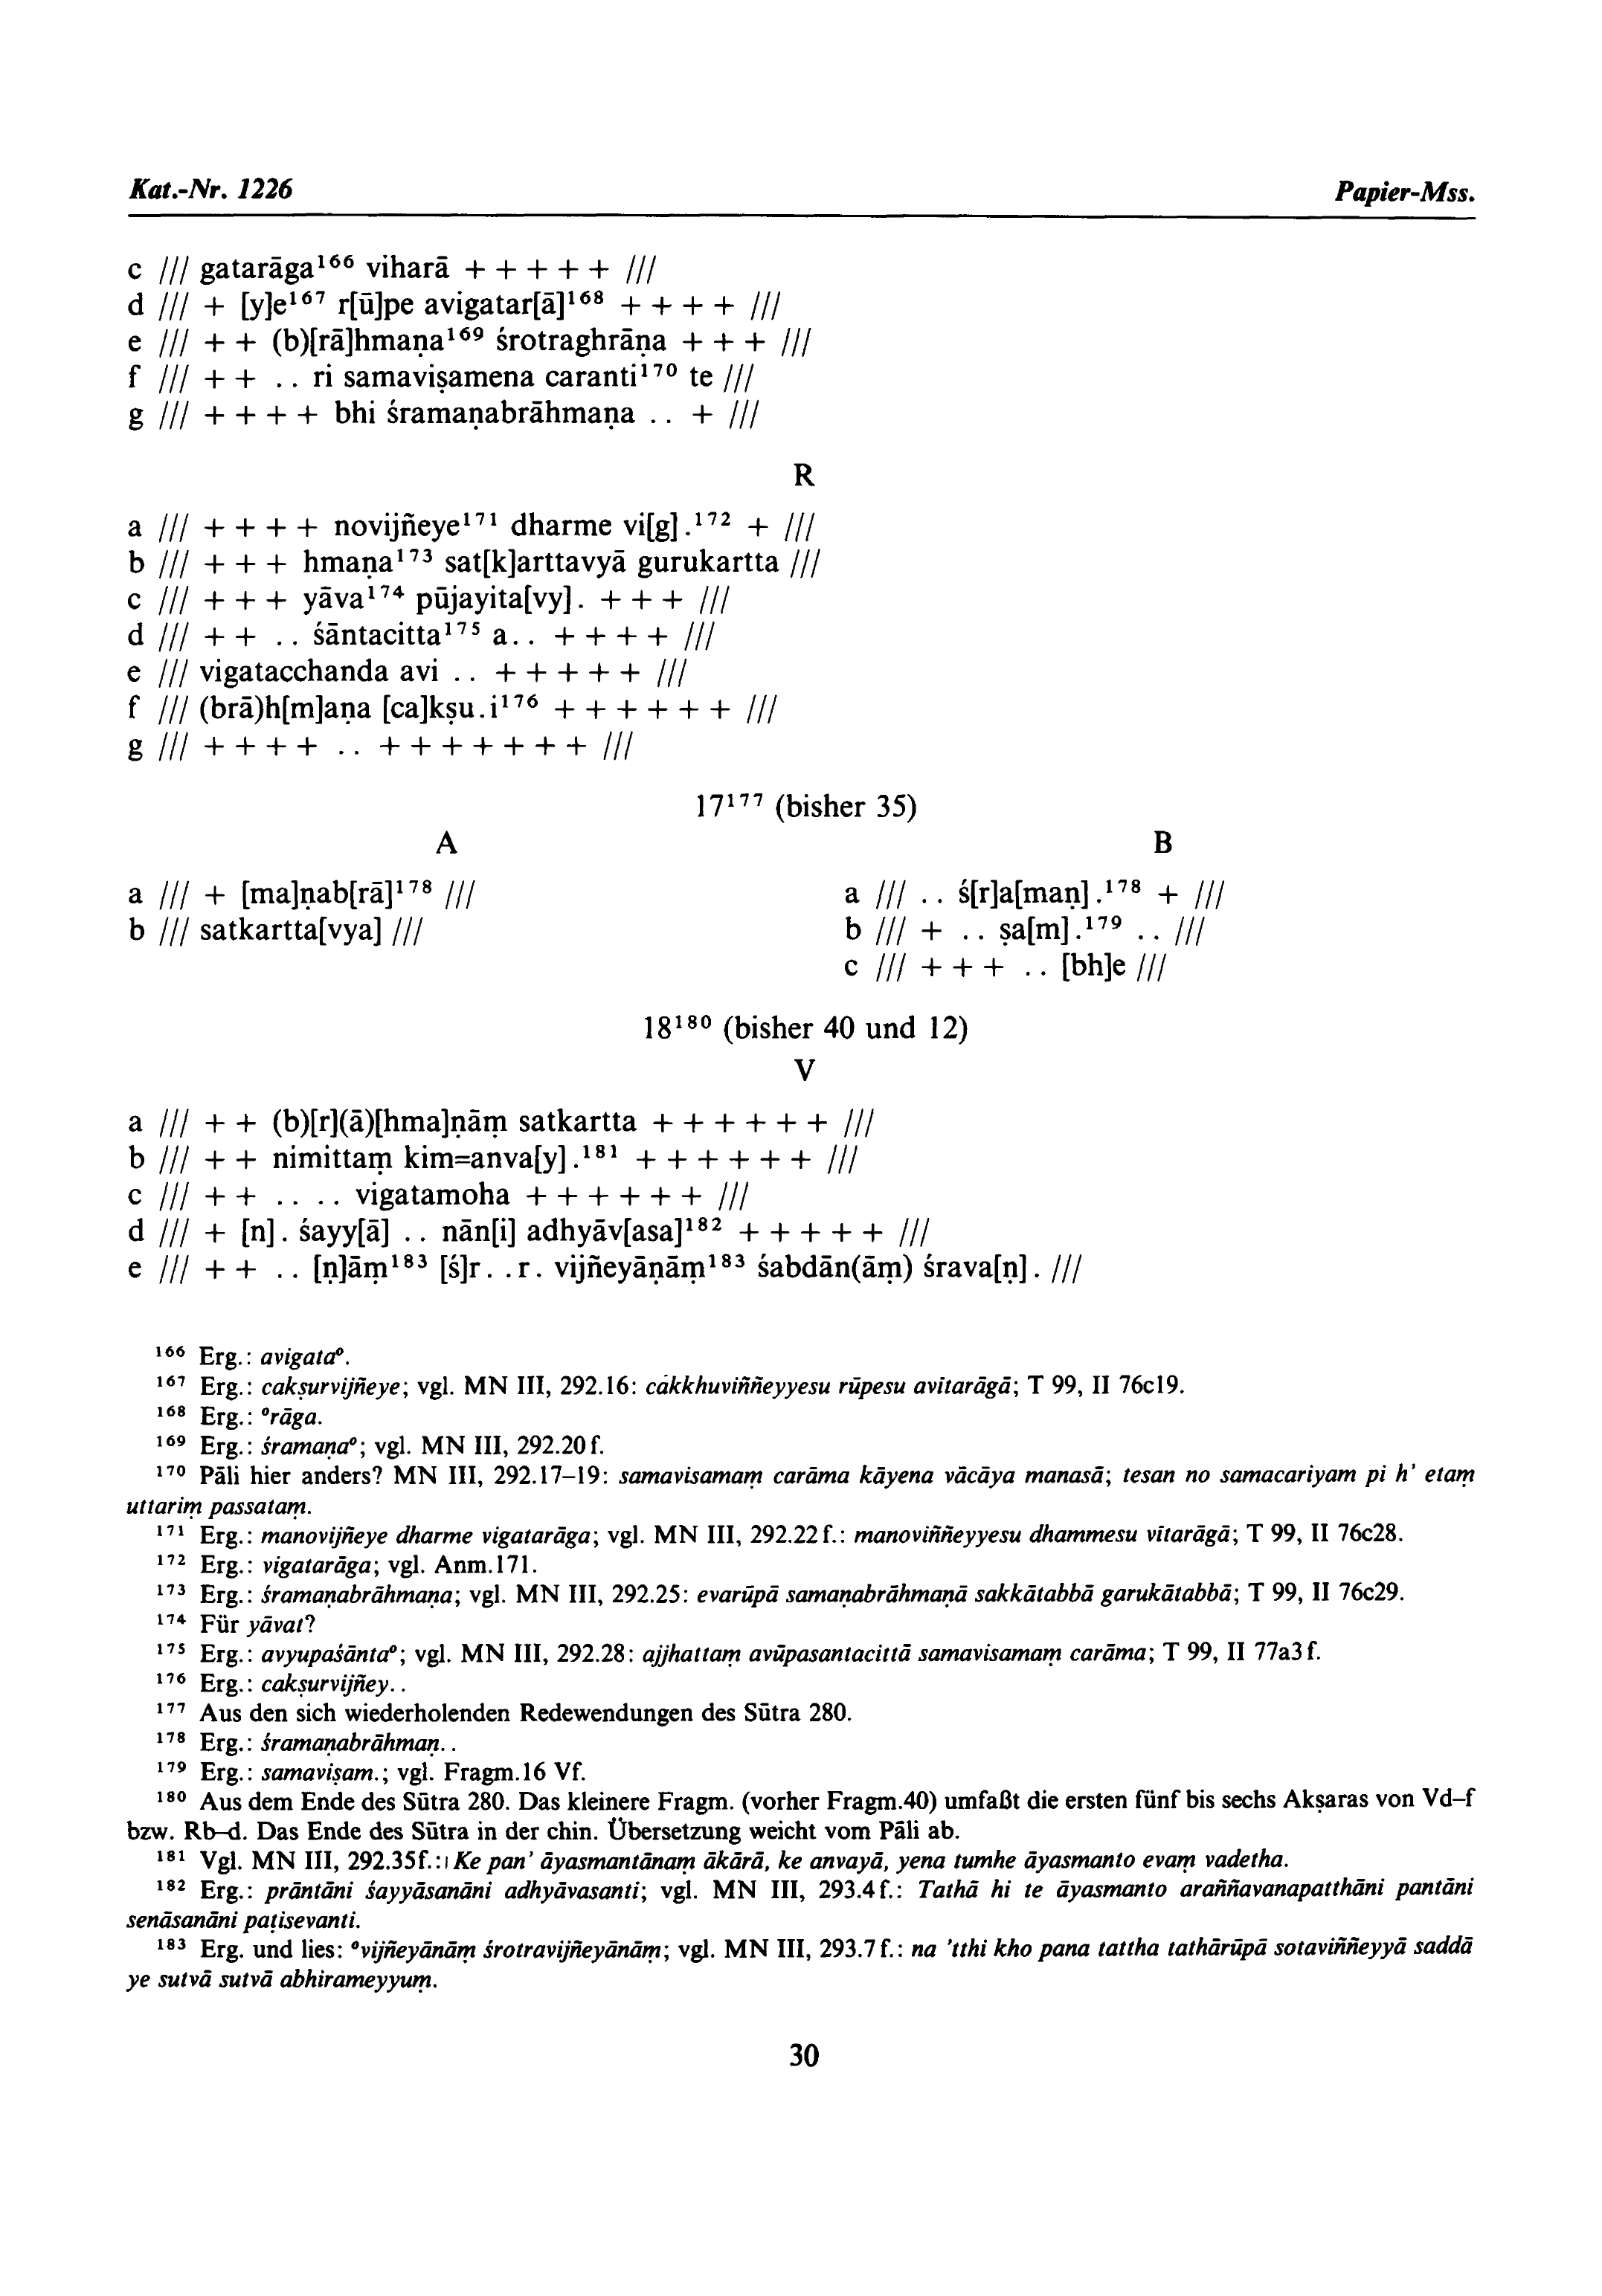 Kat.-Nr. 1226 Papier-Mss.
c /// gatarāga¹⁶⁶ viharā + + + + + ///
d /// + [y]e¹⁶⁷ r[ū]pe avigatar[ā]¹⁶⁸ + + + + ///
e /// + + (b)[rā]hmaṇa¹⁶⁹ śrotraghrāṇa + + + ///
f /// + + .. ri samaviṣamena caranti¹⁷⁰ te ///
g /// + + + + bhi śramaṇabrāhmaṇa .. + ///
R
a /// + + + + novijñeye¹⁷¹ dharme vi[g].¹⁷² + ///
b /// + + + hmaṇa¹⁷³ sat[k]arttavyā gurukartta ///
c /// + + + yāva¹⁷⁴ pūjayita[vy]. + + + ///
d /// + + .. śāntacitta¹⁷⁵ a.. + + + + ///
e /// vigatacchanda avi .. + + + + + ///
f /// (brā)h[m]aṇa [ca]kṣu.i¹⁷⁶ + + + + + + ///
g /// + + + + .. + + + + + + + ///
17¹⁷⁷ (bisher 35)
A B
a /// + [ma]ṇab[rā]¹⁷⁸ /// a /// .. ś[r]a[maṇ].¹⁷⁸ + ///
b /// satkartta[vya] /// b /// + .. ṣa[m].¹⁷⁹ .. ///
c /// + + + .. [bh]e ///
18¹⁸⁰ (bisher 40 und 12)
V
a /// + + (b)[r](ā)[hma]ṇāṃ satkartta + + + + + + ///
b /// + + nimittaṃ kim=anva[y].¹⁸¹ + + + + + + ///
c /// + + .. .. vigatamoha + + + + + + ///
d /// + [n]. śayy[ā] .. nān[i] adhyāv[asa]¹⁸² + + + + + ///
e /// + + .. [ṇ]āṃ¹⁸³ [ś]r. .r. vijñeyāṇāṃ¹⁸³ śabdān(āṃ) śrava[ṇ]. ///
¹⁶⁶ Erg.: avigata°.
¹⁶⁷ Erg.: cakṣurvijñeye; vgl. MN III, 292.16: cakkhuviññeyyesu rūpesu avitarāgā; T 99, II 76c19.
¹⁶⁸ Erg.: °rāga.
¹⁶⁹ Erg.: śramaṇa°; vgl. MN III, 292.20 f.
¹⁷⁰ Pāli hier anders? MN III, 292.17–19: samavisamaṃ carāma kāyena vācāya manasā; tesan no samacariyam pi h' etaṃ
uttariṃ passataṃ.
¹⁷¹ Erg.: manovijñeye dharme vigatarāga; vgl. MN III, 292.22 f.: manoviññeyyesu dhammesu vitarāgā; T 99, II 76c28.
¹⁷² Erg.: vigatarāga; vgl. Anm.171.
¹⁷³ Erg.: śramaṇabrāhmaṇa; vgl. MN III, 292.25: evarūpā samaṇabrāhmaṇā sakkātabbā garukātabbā; T 99, II 76c29.
¹⁷⁴ Für yāvat?
¹⁷⁵ Erg.: avyupaśānta°; vgl. MN III, 292.28: ajjhattaṃ avūpasantacittā samavisamaṃ carāma; T 99, II 77a3 f.
¹⁷⁶ Erg.: cakṣurvijñey..
¹⁷⁷ Aus den sich wiederholenden Redewendungen des Sūtra 280.
¹⁷⁸ Erg.: śramaṇabrāhmaṇ..
¹⁷⁹ Erg.: samaviṣam.; vgl. Fragm.16 Vf.
¹⁸⁰ Aus dem Ende des Sūtra 280. Das kleinere Fragm. (vorher Fragm.40) umfaßt die ersten fünf bis sechs Akṣaras von Vd–f
bzw. Rb–d. Das Ende des Sūtra in der chin. Übersetzung weicht vom Pāli ab.
¹⁸¹ Vgl. MN III, 292.35f.: Ke pan' āyasmantānaṃ ākārā, ke anvayā, yena tumhe āyasmanto evaṃ vadetha.
¹⁸² Erg.: prāntāni śayyāsanāni adhyāvasanti; vgl. MN III, 293.4 f.: Tathā hi te āyasmanto araññavanapatthāni pantāni
senāsanāni paṭisevanti.
¹⁸³ Erg. und lies: °vijñeyānāṃ śrotravijñeyānāṃ; vgl. MN III, 293.7 f.: na 'tthi kho pana tattha tathārūpā sotaviññeyyā saddā
ye sutvā sutvā abhirameyyuṃ.
30